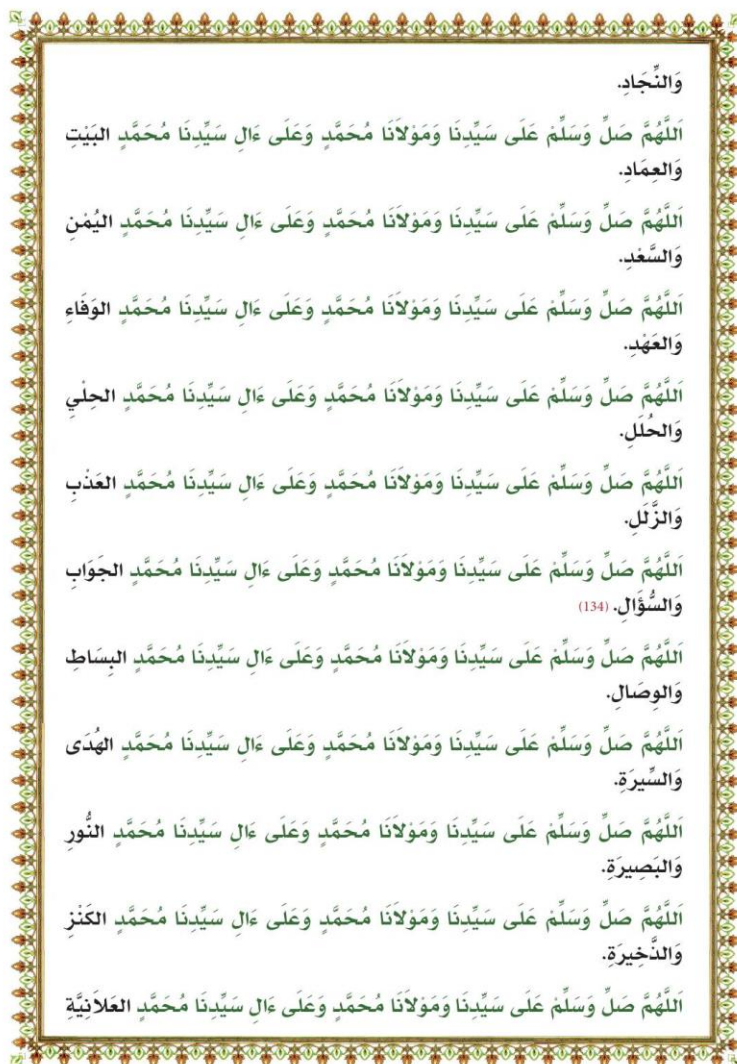 وَالنِّجَادِ.
اَللَّهُمَّ صَلِّ وَسَلِّمْ عَلَى سَيِّدِنَا وَمَوْلَانَا مُحَمَّدٍ وَعَلَى ءَالِ سَيِّدِنَا مُحَمَّدٍ البَيْتِ
وَالعِمَادِ.
اَللَّهُمَّ صَلِّ وَسَلِّمْ عَلَى سَيِّدِنَا وَمَوْلَانَا مُحَمَّدٍ وَعَلَى ءَالِ سَيِّدِنَا مُحَمَّدٍ اليُمْنِ
وَالسَّعْدِ.
اَللَّهُمَّ صَلِّ وَسَلِّمْ عَلَى سَيِّدِنَا وَمَوْلَانَا مُحَمَّدٍ وَعَلَى ءَالِ سَيِّدِنَا مُحَمَّدٍ الوَفَاءِ
وَالعَهْدِ.
اَللَّهُمَّ صَلِّ وَسَلِّمْ عَلَى سَيِّدِنَا وَمَوْلَانَا مُحَمَّدٍ وَعَلَى ءَالِ سَيِّدِنَا مُحَمَّدٍ الحِلْيِ
وَالحُلَلِ.
اَللَّهُمَّ صَلِّ وَسَلِّمْ عَلَى سَيِّدِنَا وَمَوْلَانَا مُحَمَّدٍ وَعَلَى ءَالِ سَيِّدِنَا مُحَمَّدٍ العَذْبِ
وَالزَّلَلِ.
اَللَّهُمَّ صَلِّ وَسَلِّمْ عَلَى سَيِّدِنَا وَمَوْلَانَا مُحَمَّدٍ وَعَلَى ءَالِ سَيِّدِنَا مُحَمَّدٍ الجَوَابِ
وَالسُّؤَالِ. (134)
اَللَّهُمَّ صَلِّ وَسَلِّمْ عَلَى سَيِّدِنَا وَمَوْلَانَا مُحَمَّدٍ وَعَلَى ءَالِ سَيِّدِنَا مُحَمَّدٍ البِسَاطِ
وَالوِصَالِ.
اَللَّهُمَّ صَلِّ وَسَلِّمْ عَلَى سَيِّدِنَا وَمَوْلَانَا مُحَمَّدٍ وَعَلَى ءَالِ سَيِّدِنَا مُحَمَّدٍ الهُدَى
وَالسِّيرَةِ.
اَللَّهُمَّ صَلِّ وَسَلِّمْ عَلَى سَيِّدِنَا وَمَوْلَانَا مُحَمَّدٍ وَعَلَى ءَالِ سَيِّدِنَا مُحَمَّدٍ النُّورِ
وَالبَصِيرَةِ.
اَللَّهُمَّ صَلِّ وَسَلِّمْ عَلَى سَيِّدِنَا وَمَوْلَانَا مُحَمَّدٍ وَعَلَى ءَالِ سَيِّدِنَا مُحَمَّدٍ الكَنْزِ
وَالذَّخِيرَةِ.
اَللَّهُمَّ صَلِّ وَسَلِّمْ عَلَى سَيِّدِنَا وَمَوْلَانَا مُحَمَّدٍ وَعَلَى ءَالِ سَيِّدِنَا مُحَمَّدٍ العَلَانِيَّةِ